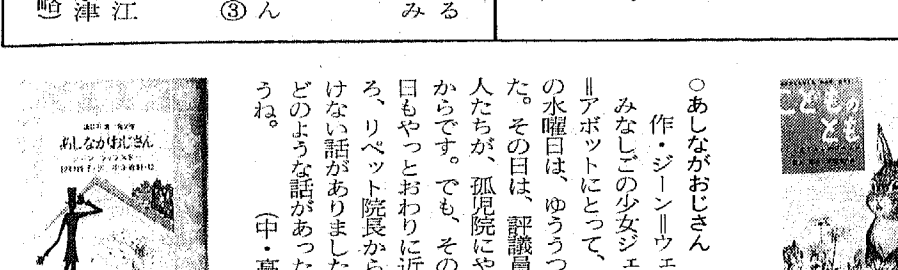 る
み
ん
③
江
津
略)
こどもの
とも
○あしながおじさん
作・ジーン=ウェ
みなしごの少女ジェ
=アボットにとって、
の水曜日は、ゆううつ
た。その日は、評議員
人たちが、孤児院にや
からです。でも、その
日もやっとおわりに近
ろ、リペット院長から
けない話がありました
どのような話があった
うね。
(中・高
あしながおじさん